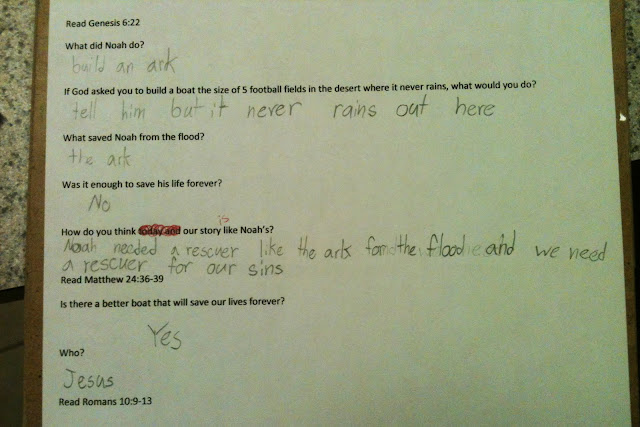 Read Genesis 6:22
What did Noah do?
build an ark
If God asked you to build a boat the size of 5 football fields in the desert where it never rains, what would you do?
tell him but it never rains out here
What saved Noah from the flood?
the ark
Was it enough to save his life forever?
No
is
How do you think today and our story like Noah's?
Noah needed a rescuer like the ark the flood and we need
a rescuer for our sins
Read Matthew 24:36-39
Is there a better boat that will save our lives forever?
Yes
Who?
Jesus
Read Romans 10:9-13